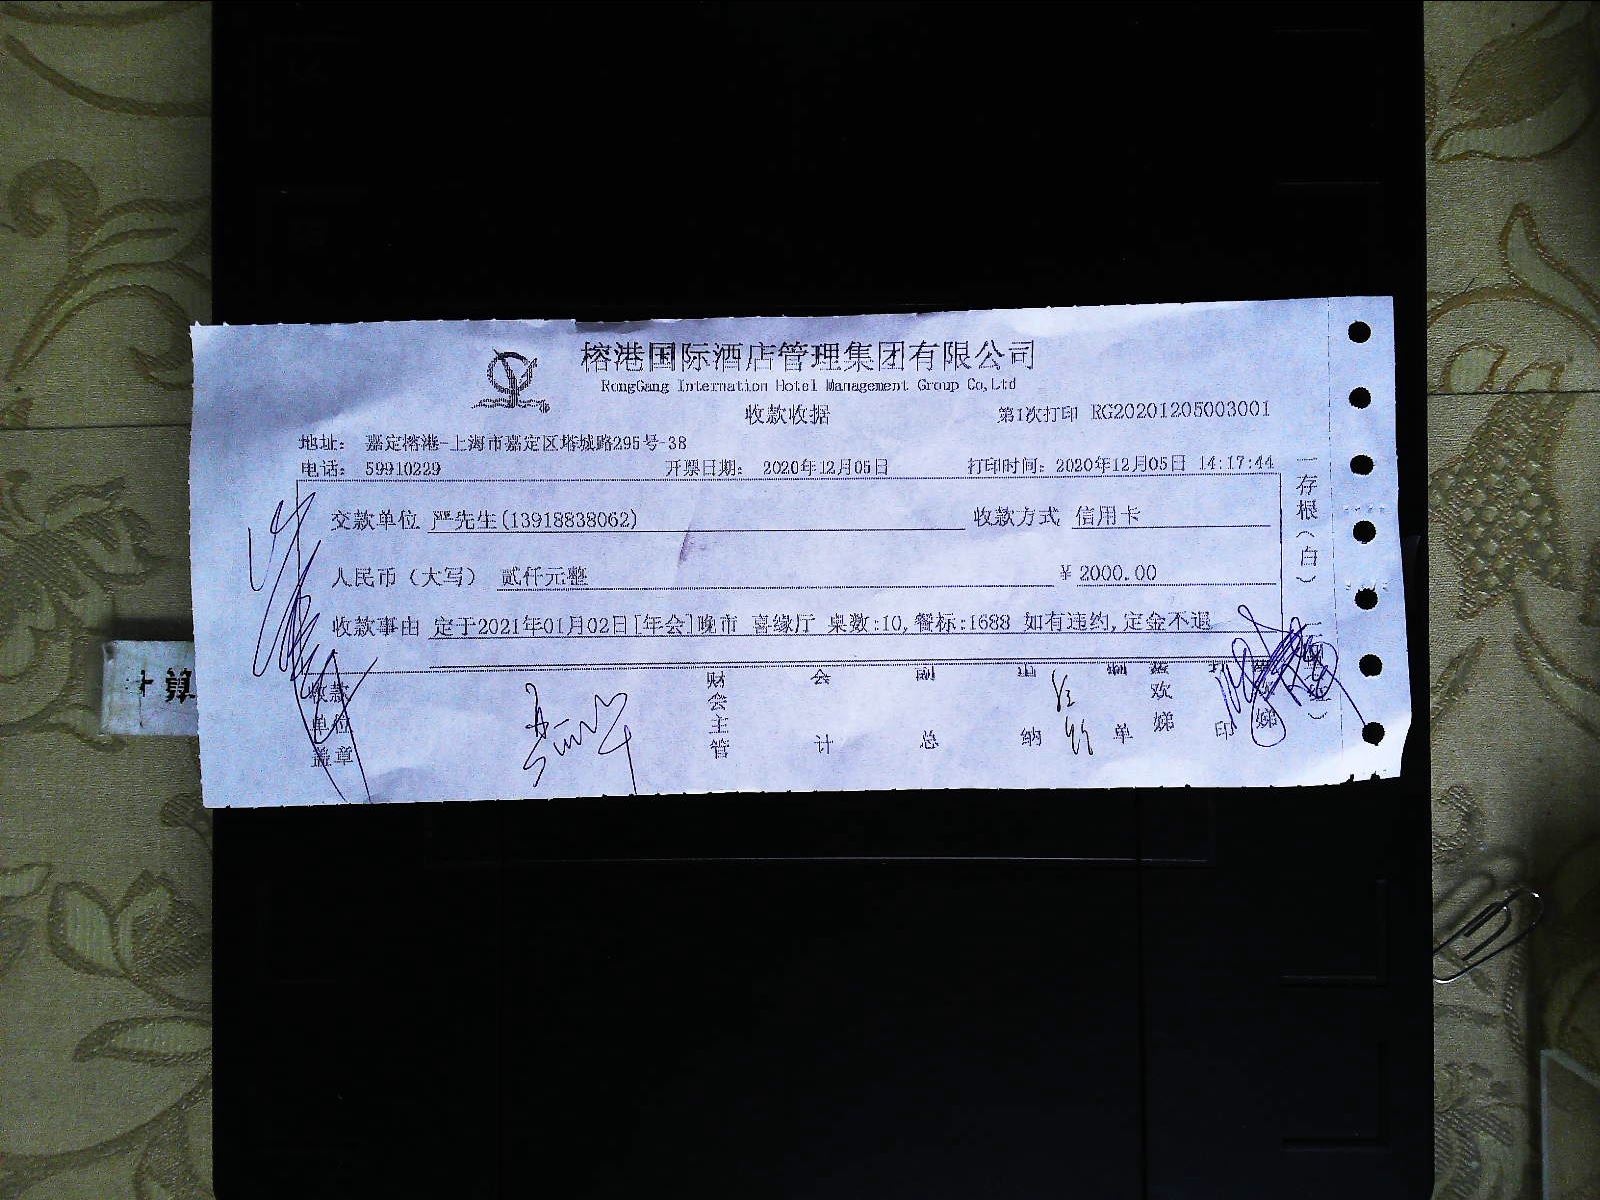 榕港国际酒店管理集团有限公司
RongGang Internation Hotel Management Group Co,Ltd
收款收据
第1次打印 RG20201205003001
地址： 嘉定榕港-上海市嘉定区塔城路295号-38
电话： 59910229 开票日期： 2020年12月05日 打印时间：2020年12月05日 14:17:44
交款单位 严先生(13918838062) 收款方式 信用卡
人民币（大写） 贰仟元整 ¥ 2000.00
收款事由 定于2021年01月02日[年会]晚市 喜缘厅 桌数:10,餐标:1688 如有违约,定金不退
一存根（白）
收款
单位
盖章
财会主管
会计
副总
出纳
制单
欢娣
印
娣
算